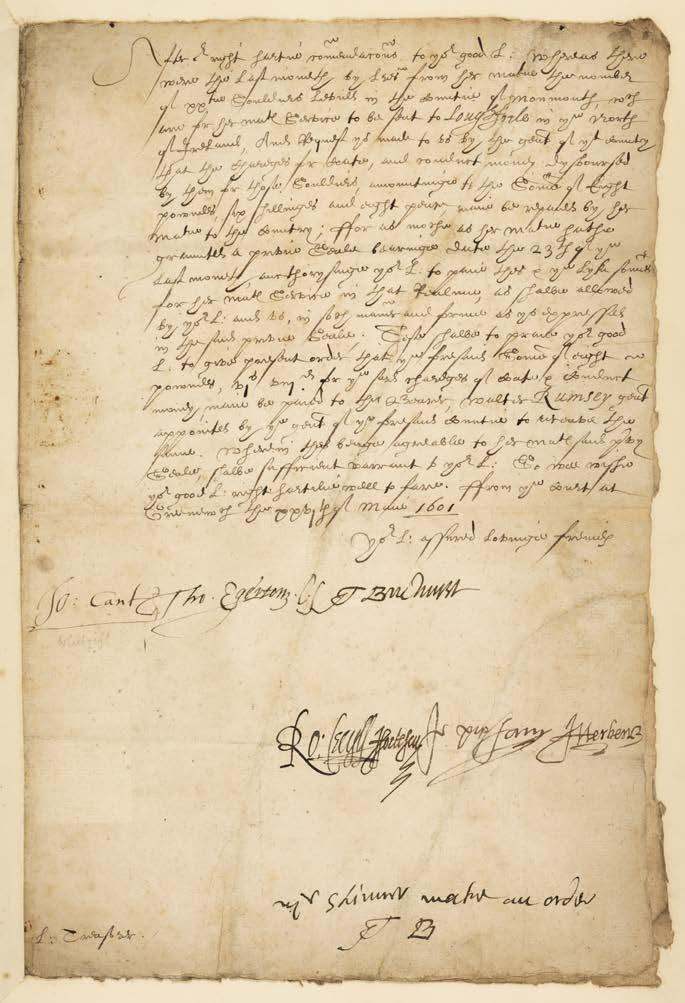 After or right hartie comendacons to yor good L: Whereas there
were the last moneth by Lres from her matie the number
of xxtie Souldiers levied in the Countie of Monmouth, wch
are for her mats Service to be sent to Lough foile in ye North
of Ireland, And Request ys made to vs by the gent of ye Countrey
that the Chardges for Coate, and conduct money dysboursed
by them for those Souldiers, amountinge to the Some of Eight
powndes, six shillinges and eight pence maie be repaied by her
Matie to the Countrey; ffor as moche as her Matie hathe
graunted a privie Seale bearinge date the 23th of ye
last moneth, aucthorysinge yor L: to paie thes & ye lyke somes
for her mats Service in that Realme, as shalbe allowed
by yor L: and vs, in soch maner and forme as ys expressed
in the said privie Seale: These shalbe to praie yor good
L: to give present order, that ye foresaid Some of eight
powndes, vjs viijd for ye said chardges of Coate & Conduct
money, maie be paied to the Bearer Walter Rumsey gent
appointed by ye gent of ye foresaid Countie to receave the
same. Wherein this beinge agreable to her mats said pryvy
Seale, shalbe sufficient warrant to yor L: So wee wishe
yor good L: right hartelie well to fare. ffrom ye Court at
Greenewch the xxvith of Maie 1601
Yor L: assured lovinge frendes
Jo: Cant Tho. Egerton. C.S. T Buchurst
Ro: Cecyll J fortescu J Herbert
mr Skinner make an order
T B
L: Treasurer.